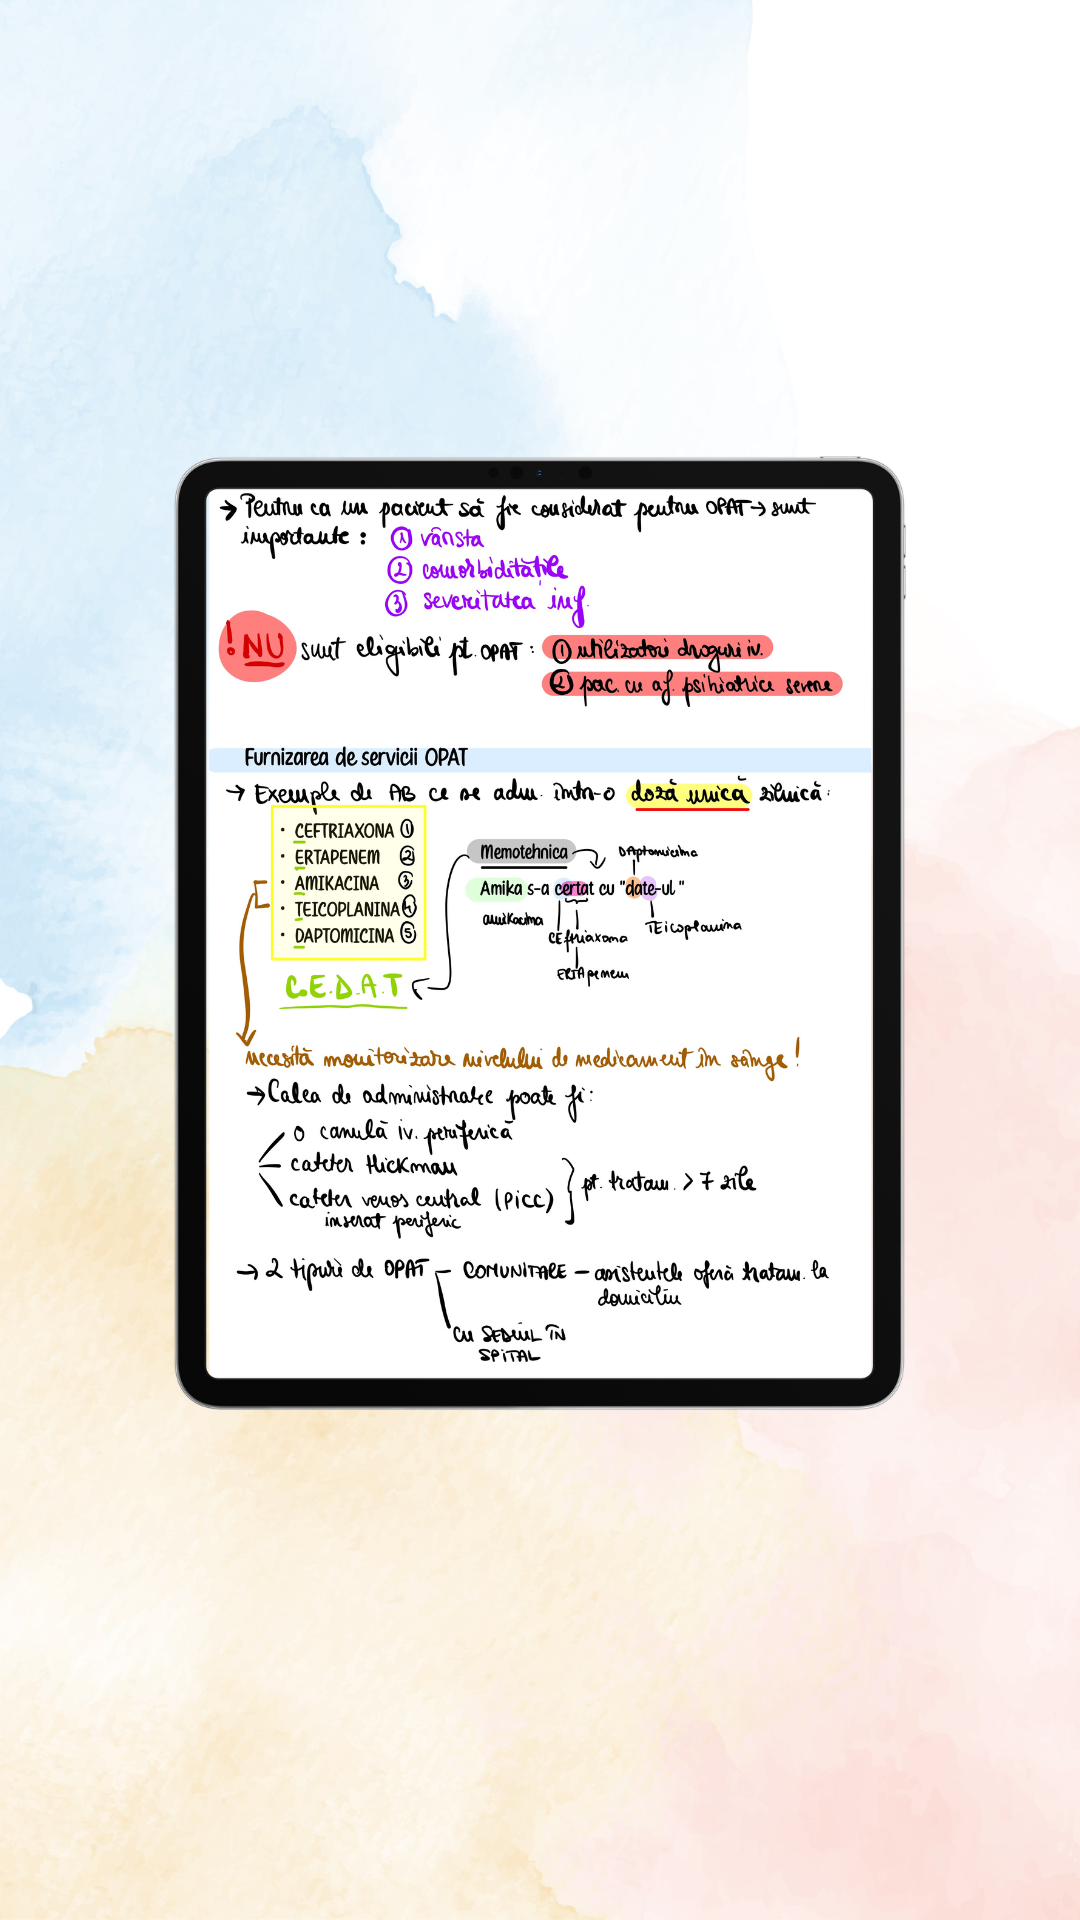 → Pentru ca un pacient să fie considerat pentru OPAT → sunt
importante : ① vânsta
② comorbiditățile
③ severitatea inf.
! NU sunt eligibili pt. OPAT : ① utilizatori droguri iv.
② pac. cu af. psihiatrice severe
Furnizarea de servicii OPAT
→ Exemple de AB ce se adm. într-o doză unică zilnică :
· CEFTRIAXONA ①
· ERTAPENEM ②
· AMIKACINA ③
· TEICOPLANINA ④
· DAPTOMICINA ⑤
C.E.D.A.T
Memotehnica
DAptomicina
Amika s-a certat cu "date-ul "
amikacina
CEftriaxona
TEicoplanina
ERTApenem
necesită monitorizare nivelului de medicament în sânge !
→ Calea de administrare poate fi :
o canulă iv. periferică
cateter Hickman
cateter venos central (PiCC)
inserat periferic
pt. tratam. > 7 zile
→ 2 tipuri de OPAT – COMUNITARE – asistentele oferă tratam. la
domiciliu
CU SEDIUL ÎN
SPITAL